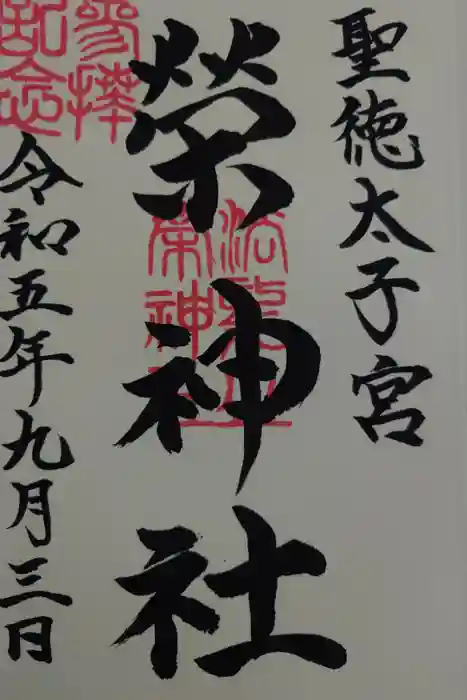 聖徳太子宮
榮神社
令和五年九月三日
參拜
記念
榮神社